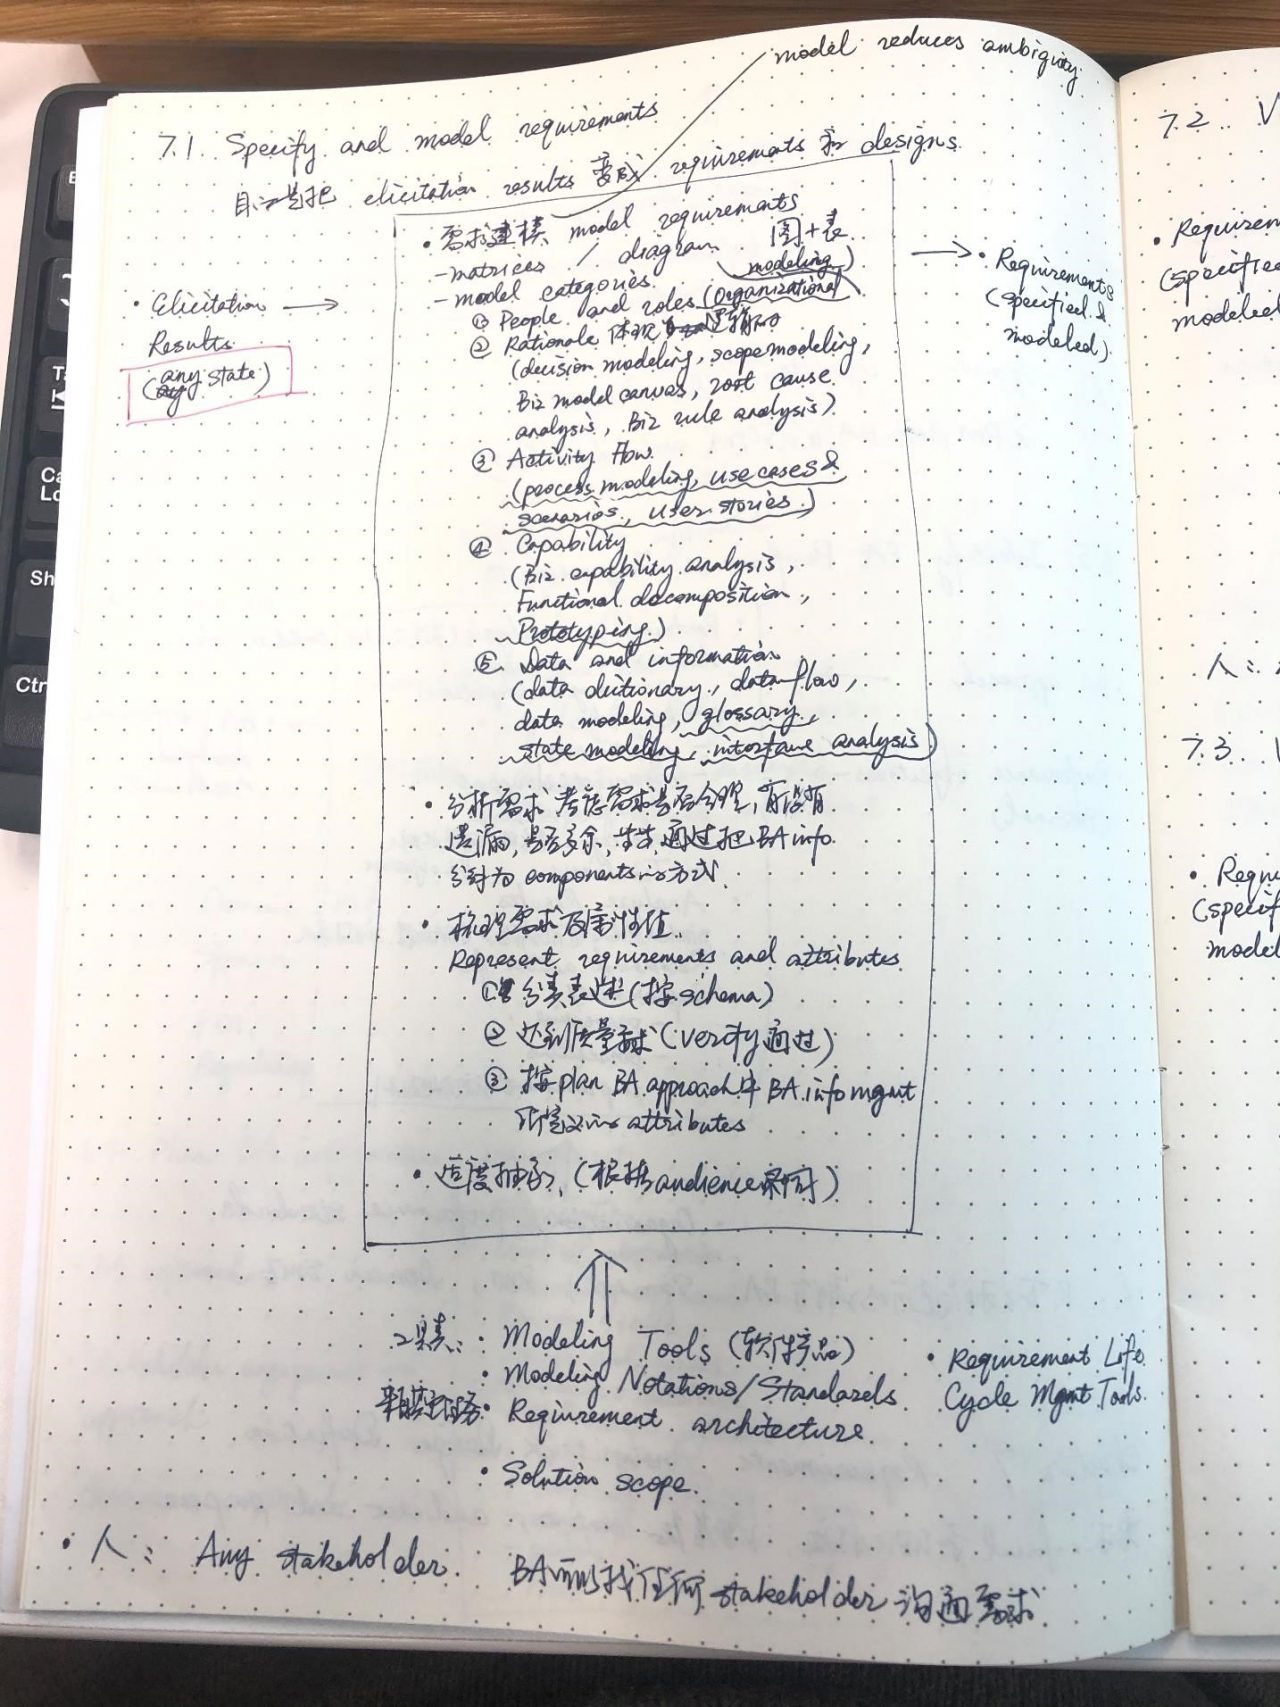 model reduces ambiguity
7.1. Specify and model requirements
目的是把 elicitation results 变成 requirements 和 designs
• 需求建模 model requirements
- matrices / diagram 图+表
- model categories
① People and roles (Organizational modeling)
② Rationale 体现
(decision modeling, scope modeling,
Biz model canvas, root cause
analysis, Biz rule analysis)
③ Activity flow
(process modeling, use cases &
scenarios, user stories)
④ Capability
(Biz capability analysis,
Functional decomposition,
Prototyping)
⑤ Data and information
(data dictionary, data flow,
data modeling, glossary,
state modeling, interface analysis)
• 分析需求 考虑需求是否合理, 有没有
遗漏, 是否多余, 通过把 BA info
分解为 components 的方式
• 梳理需求及属性值
Represent requirements and attributes
① 分类表述 (按 schema)
② 达到质量要求 (verify 通过)
③ 按 plan BA approach 中 BA info mgmt
所定义的 attributes
• 适度抽象 (根据 audience 不同)
• Elicitation →
Results
(any state)
→ • Requirements
(specified &
modeled)
工具: • Modeling Tools (软件产品)
• Modeling Notations/Standards
• Requirement architecture
• Solution scope
• Requirement Life
Cycle Mgmt Tools
• 人: Any stakeholder BA 可以找任何 stakeholder 沟通需求
7.2. V
• Requirem
(specified
modeled
人:
7.3. V
• Requi
(specif
model
B
Ta
Ca
Lo
Sh
Ctr